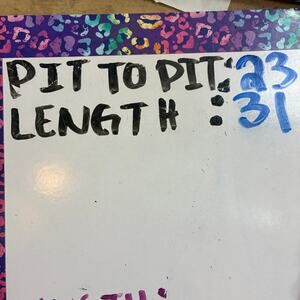 PIT TO PIT: 23
LENGTH : 31